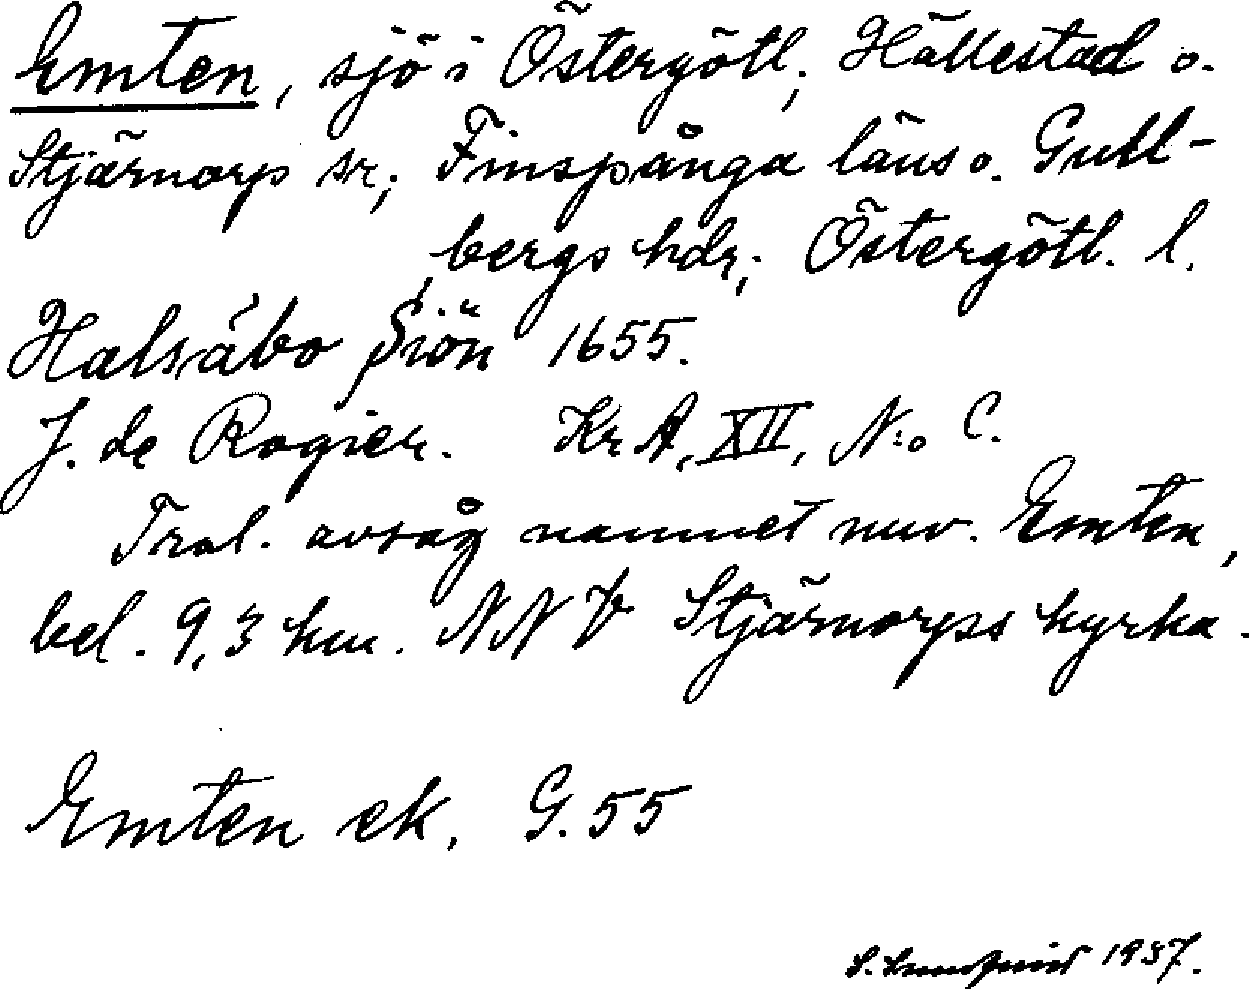 Emten, sjö i Östergötl; Hällestad o.
Stjärnorp sr; Finspånga läns o. Gull-
bergs hdr; Östergötl. l.
Halsåbo Siön 1655.
J. de Rogier. KrA, XII, N:o C.
Trol. avsåg namnet nuv. Emten,
bel. 9,3 km. NNV Stjärnorps kyrka.
Emten ek. G. 55
1937.